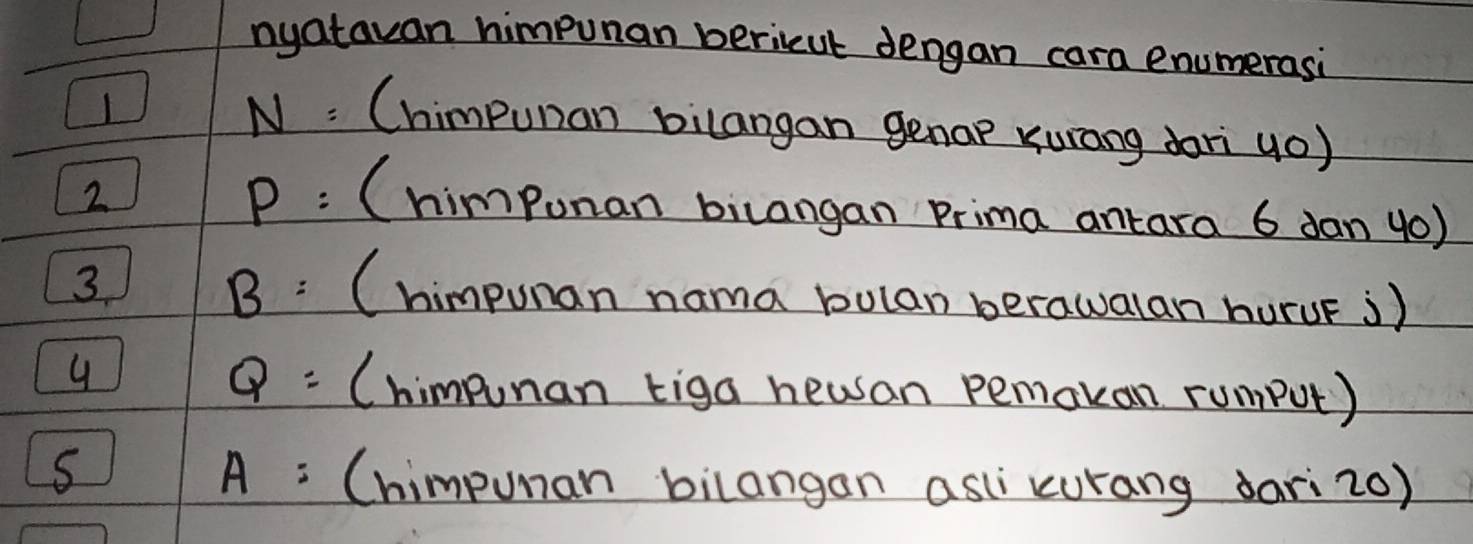 nyatakan himpunan berikut dengan cara enumerasi
1 N = (himpunan bilangan genap kurang dari 40)
2 P = (himpunan bilangan prima antara 6 dan 40)
3. B = (himpunan nama bulan berawalan huruf j)
4 Q = (himpunan tiga hewan pemakan rumput)
5 A = (himpunan bilangan asli kurang dari 20)